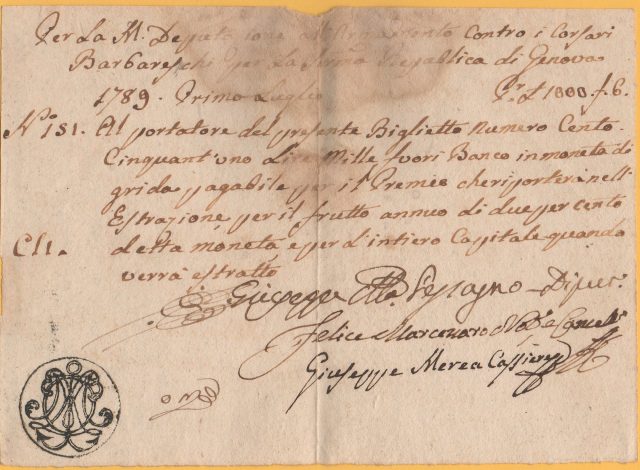 Per La M. Deputazione all'Armamento Contro i Corsari
Barbareschi per La Serma Republica di Genova
1789. Primo Luglio Pr. £ 1000 f. b.
No. 151. Al portatore del presente Biglietto Numero Cento.
Cinquant'uno Lire Mille fuori Banco in moneta di
grida pagabile per il Premio che riporterà nell'
Estrazione per il frutto annuo di due per cento
detta moneta e per l'intiero Capitale quando
verrà estratto
Giuseppe Pessagno Diput.
Felice Marcenaro
Giuseppe Merea Cassiere